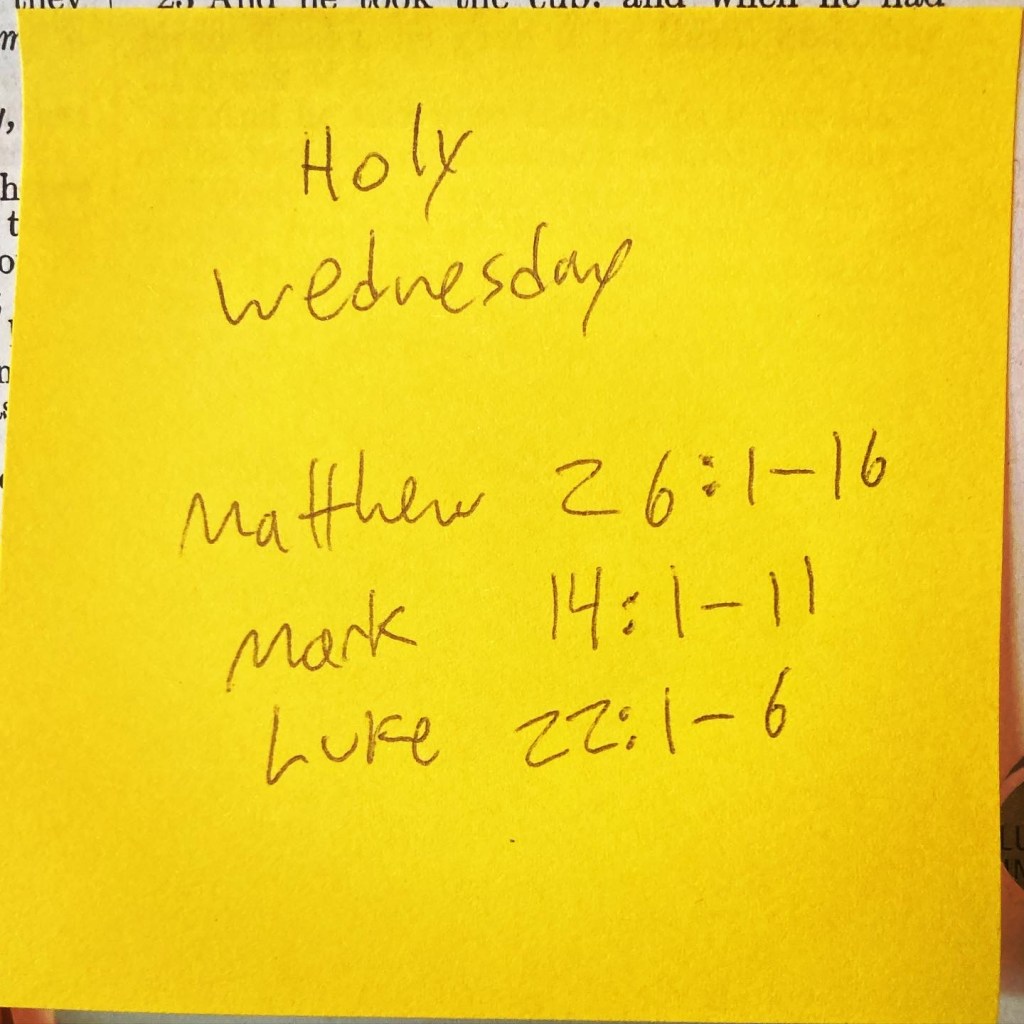 they
23 And he took the cup, and when he had
Holy
Wednesday
Matthew 26:1-16
Mark 14:1-11
Luke 22:1-6